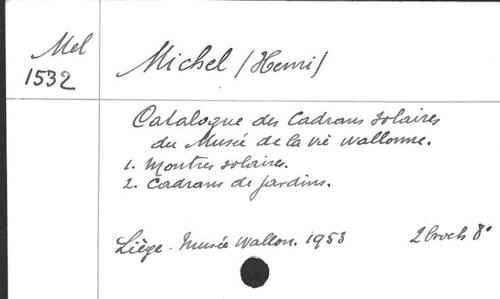 Mel
1532
Michel (Henri)
Catalogue des Cadrans solaires
du Musée de la vie wallonne.
1. Montres solaires.
2. Cadrans de jardins.
Liège - Musée Wallon. 1953 2 broch 8°